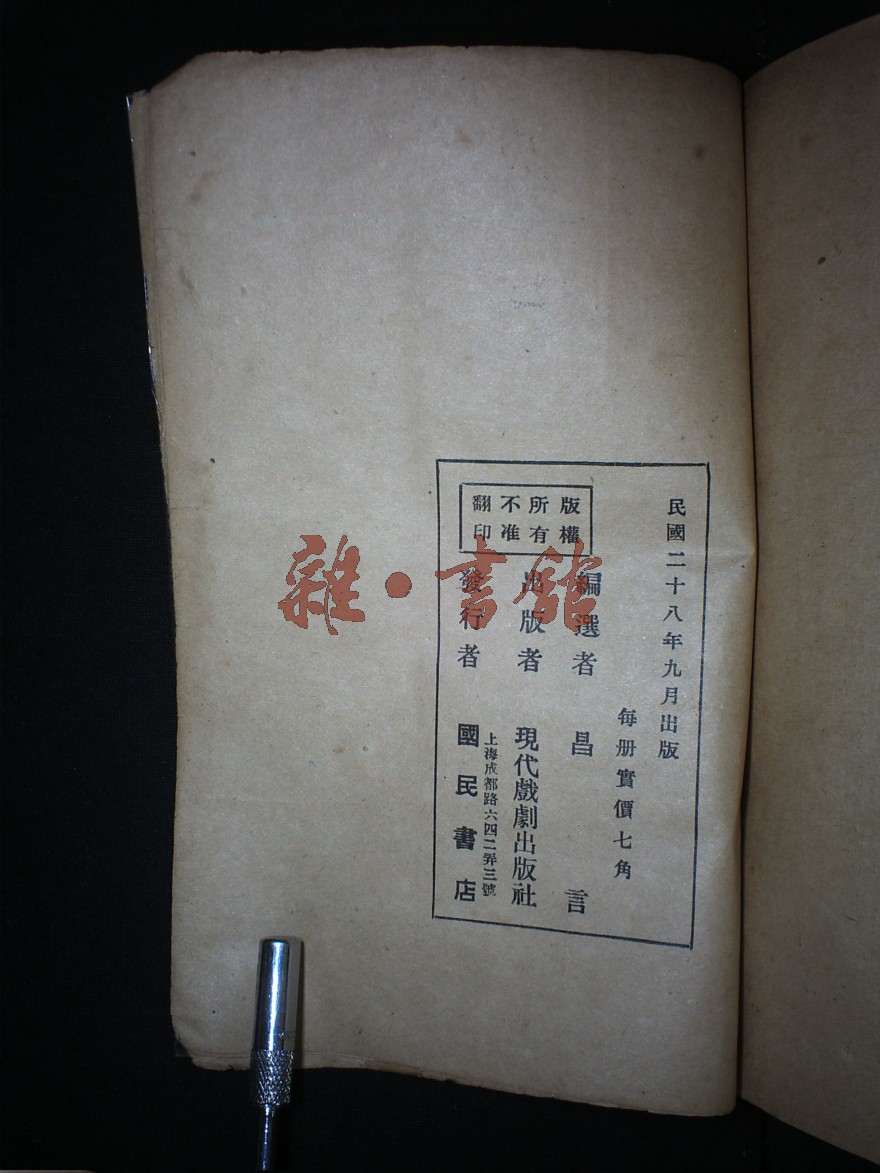 民國二十八年九月出版
每册實價七角
版權
所有
不准
翻印
編選者 昌言
出版者 現代戲劇出版社
上海成都路六四二弄三號
發行者 國民書店
雜·書館